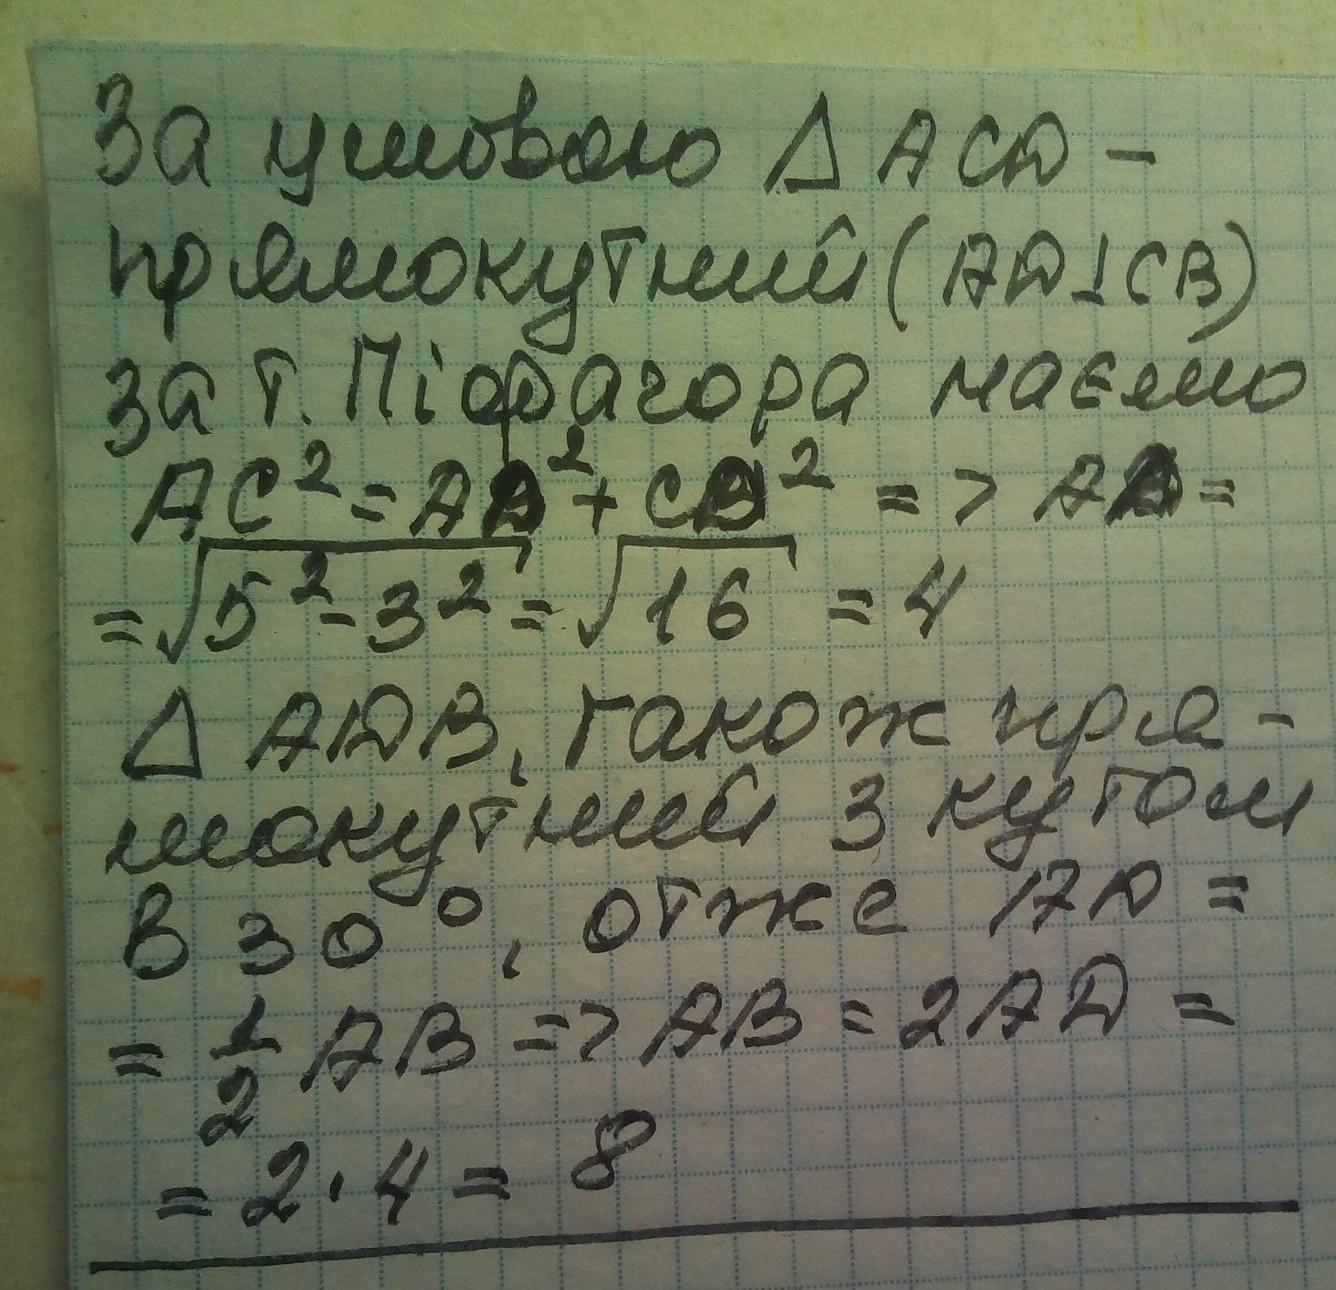 За умовою Δ ACD -
прямокутний (AD⊥CB)
за т. Піфагора маємо
AC² = AD² + CD² => AD =
= √5² - 3² = √16 = 4
Δ ADB, також пря -
мокутний з кутом
в 30°, отже AD =
= 1/2 AB => AB = 2AD =
= 2 · 4 = 8